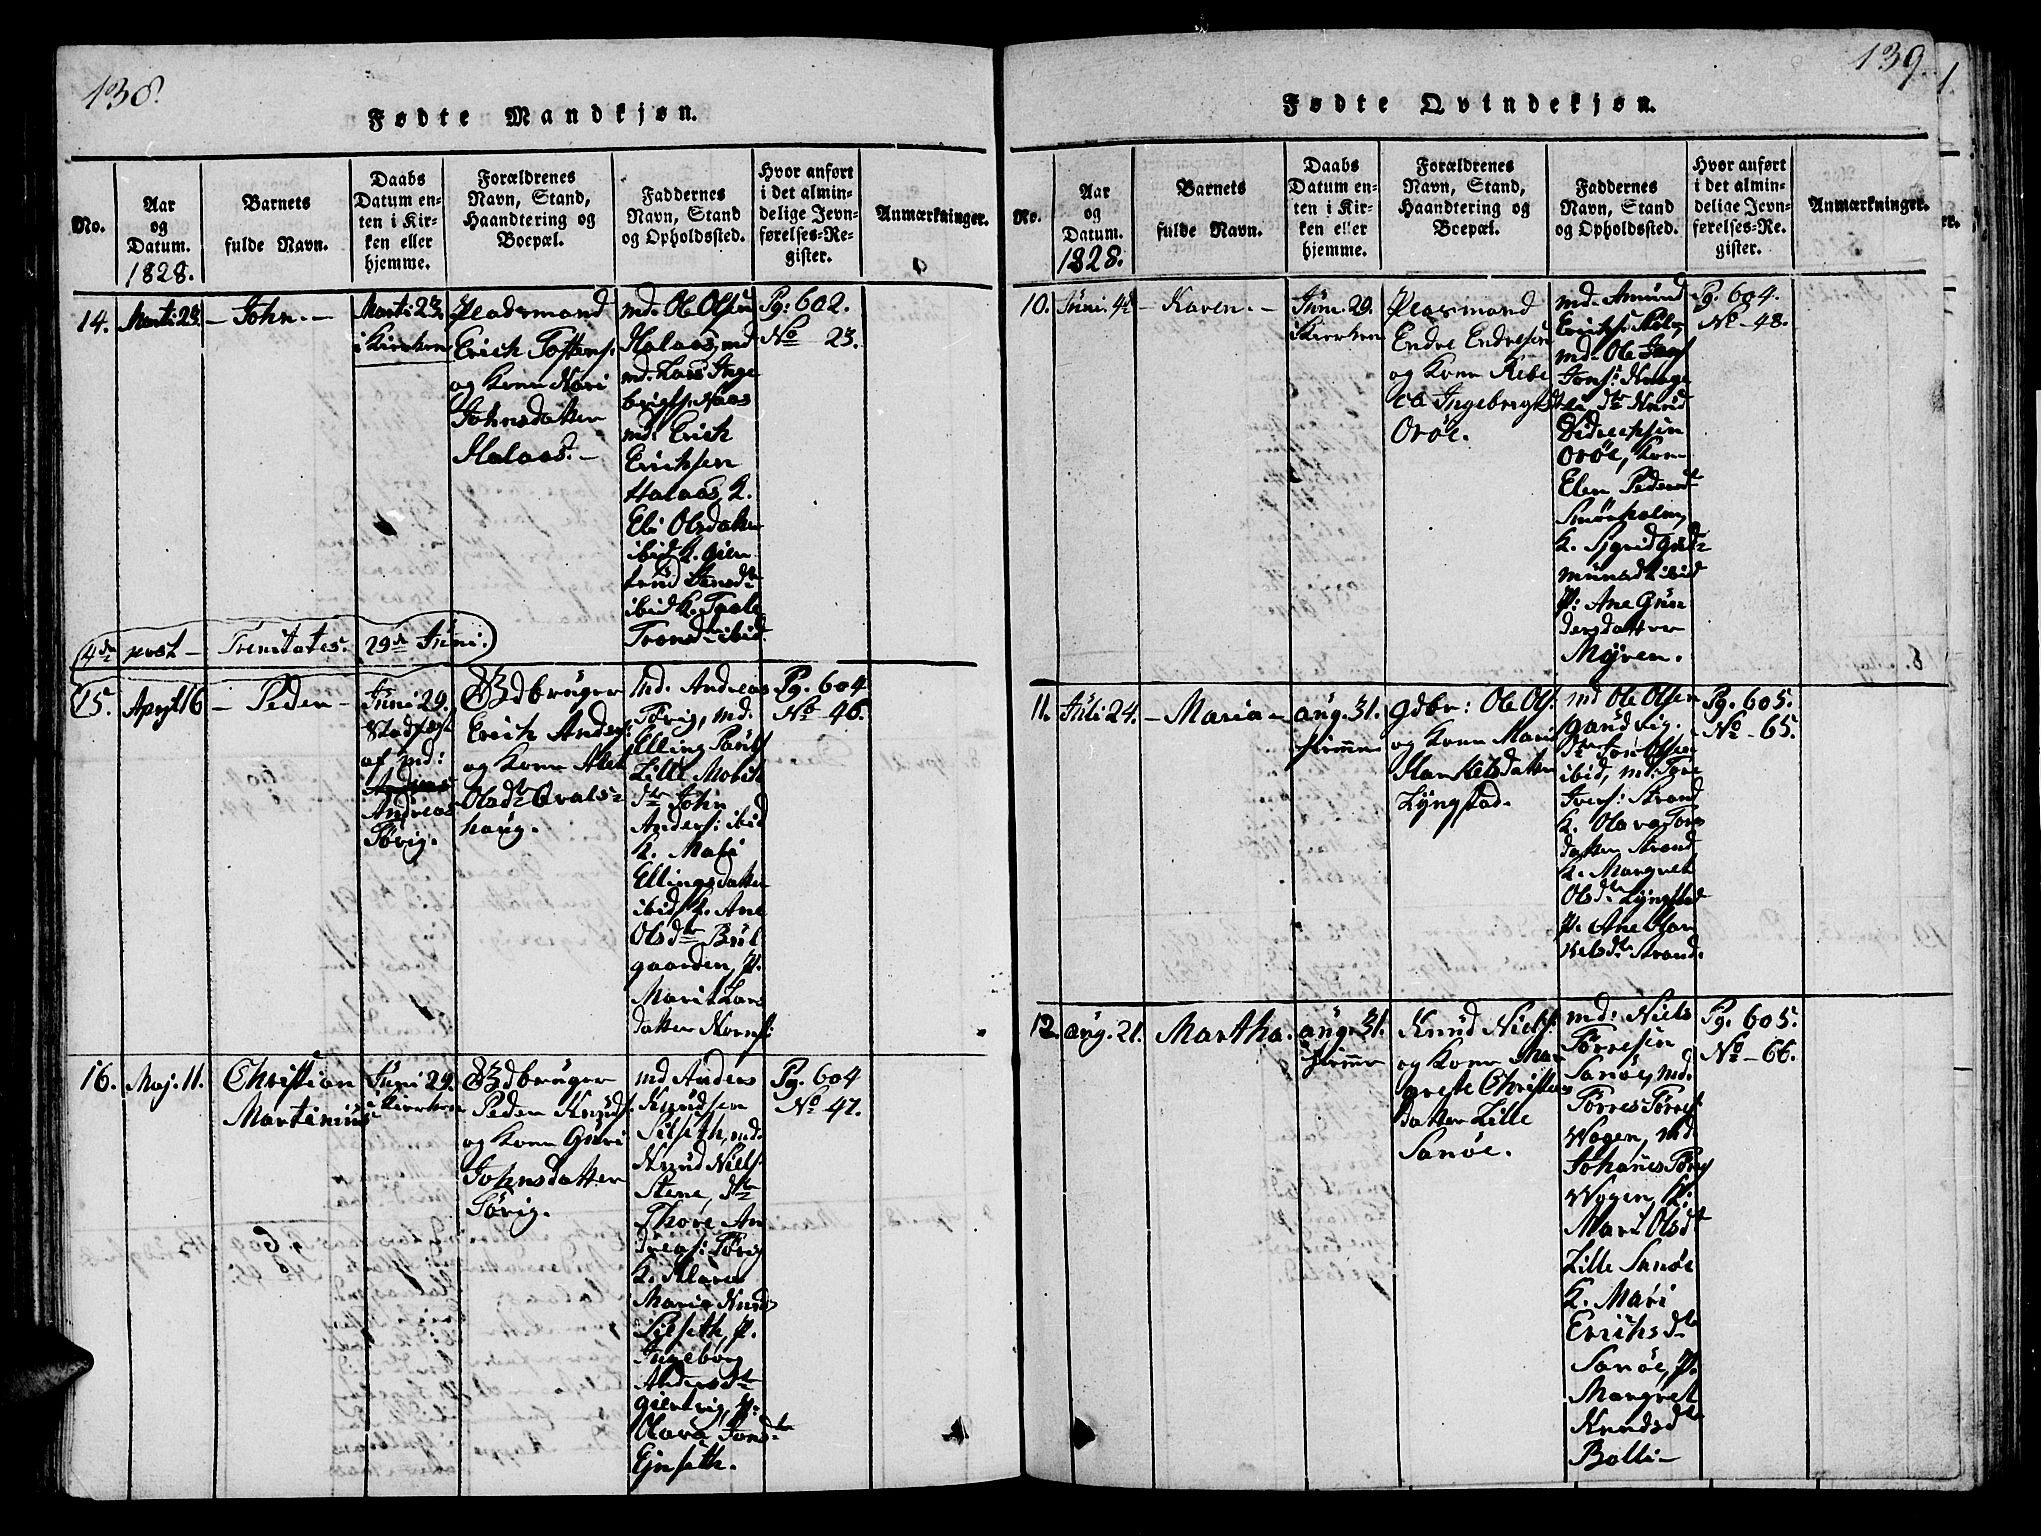 138.
Fødte Mandkjøn.
No.
Aar
og
Datum.
1828.
Barnets
fulde Navn.
Daabs
Datum en-
ten i Kir-
ken eller
hjemme.
Forældrenes
Navn, Stand,
Haandtering og
Boepæl.
Faddernes
Navn, Stand
og Opholdssted.
Hvor anført
i det almin-
delige Jevn-
førelses-Re-
gister.
Anmærkninger.
14.
Marti 23.
- John. -
Marti 23.
i Kirken
Pladsmand
Erich Tostens:
og Kone Mari
Johnsdatter
Halaas. -
md. Ole Olsen
Halaas, md
md. Lars Inge
brigts: Naas
md. Erich
Erichsen
Halaas, K.
Eli Olsdatter
ibid K. Gien
trud
ibid K.
Tronsdtr ibid
Pg. 602.
No 23.
4de post - Trinitates. 29de Juni.
15.
April 16
- Peder -
Juni 29.
Stadfæst
af md:
Andreas
Tørvig.
Gdbruger
Erich Anders:
og Kone
Olsdtr Qvals=
haug.
md. Andreas
Tørvig, md.
Elling Pouls
Lille
dtr John
Anders: ibid
K. Mali
Ellingsdatter
ibid K. Ane
Olsdtr Bul
gaarden, P.
Marit Lars
datter
Pg. 604
No - 46.
16.
Maj. 11.
Christian
Martinius
Juni 29.
i Kirken
Gdbruger
Peder Knuds:
og Kone Guri
Johnsdatter
Tørvig.
md Anders
Knudsen
Silseth, md.
Knud Niels.
Stene, dtr
Thore An
dreas: Tørvig
K.
Maria Knuds
Silseth, P.
Ingeborg
Andersdtr
P:
Olava Jonsdtr
Ejnseth.
Pg. 604
No - 47.
139.
Fødte Qvindekjøn.
No.
Aar
og
Datum.
1828.
Barnets
fulde Navn.
Daabs
Datum en-
ten i Kir-
ken eller
hjemme.
Forældrenes
Navn, Stand,
Haandtering og
Boepæl.
Faddernes
Navn, Stand
og Opholdssted.
Hvor anført
i det almin-
delige Jevn-
førelses-Re-
gister.
Anmærkninger.
10.
Juni 4de
- Karen. -
Juni 29.
i Kirken
Pladsmand
Endre Endresen
og Kone Rebe
ca Ingebrigtsdt
Orøe.
md. Amund
Erichs:
md. Ole
Jons:
dtr Knud
Didrichsen
Orøe, Kone
Elen Pedersdt
K. Sigrid Gud=
munsdt ibid
P: Ane Gun
dersdatter
Myren.
Pg. 604.
No - 48.
11.
Juli 24.
- Maria -
Aug. 31.
hjemme
Gdbr: Ole Ols.
og Kone Mari
Hanskelsdatter
Lyngstad.
md Ole Olsen
ibid, md: Tore
Ivers: Strand
K. Olava Tors
datter Strand
K. Margret
Olsdtr Lyngstad
P. Ane Han
kelsdtr Strand.
Pg. 605.
No - 65.
12.
Aug. 21.
Martha.
Aug. 31.
hjemme
Knud Niels:
og Kone Mar
grete Christens
datter Lille
Sanøe.
md: Niels
Torresen
Sanøe, md.
Torres Torres:
Wogen, md
Johanes Torres
Wogen, K:
Mari Olsdt
Lille Sanøe
K. Mari
Erichsdtr
Sanøe, P.
Margret
Knudsdtr
Bolli -
Pg. 605.
No - 66.